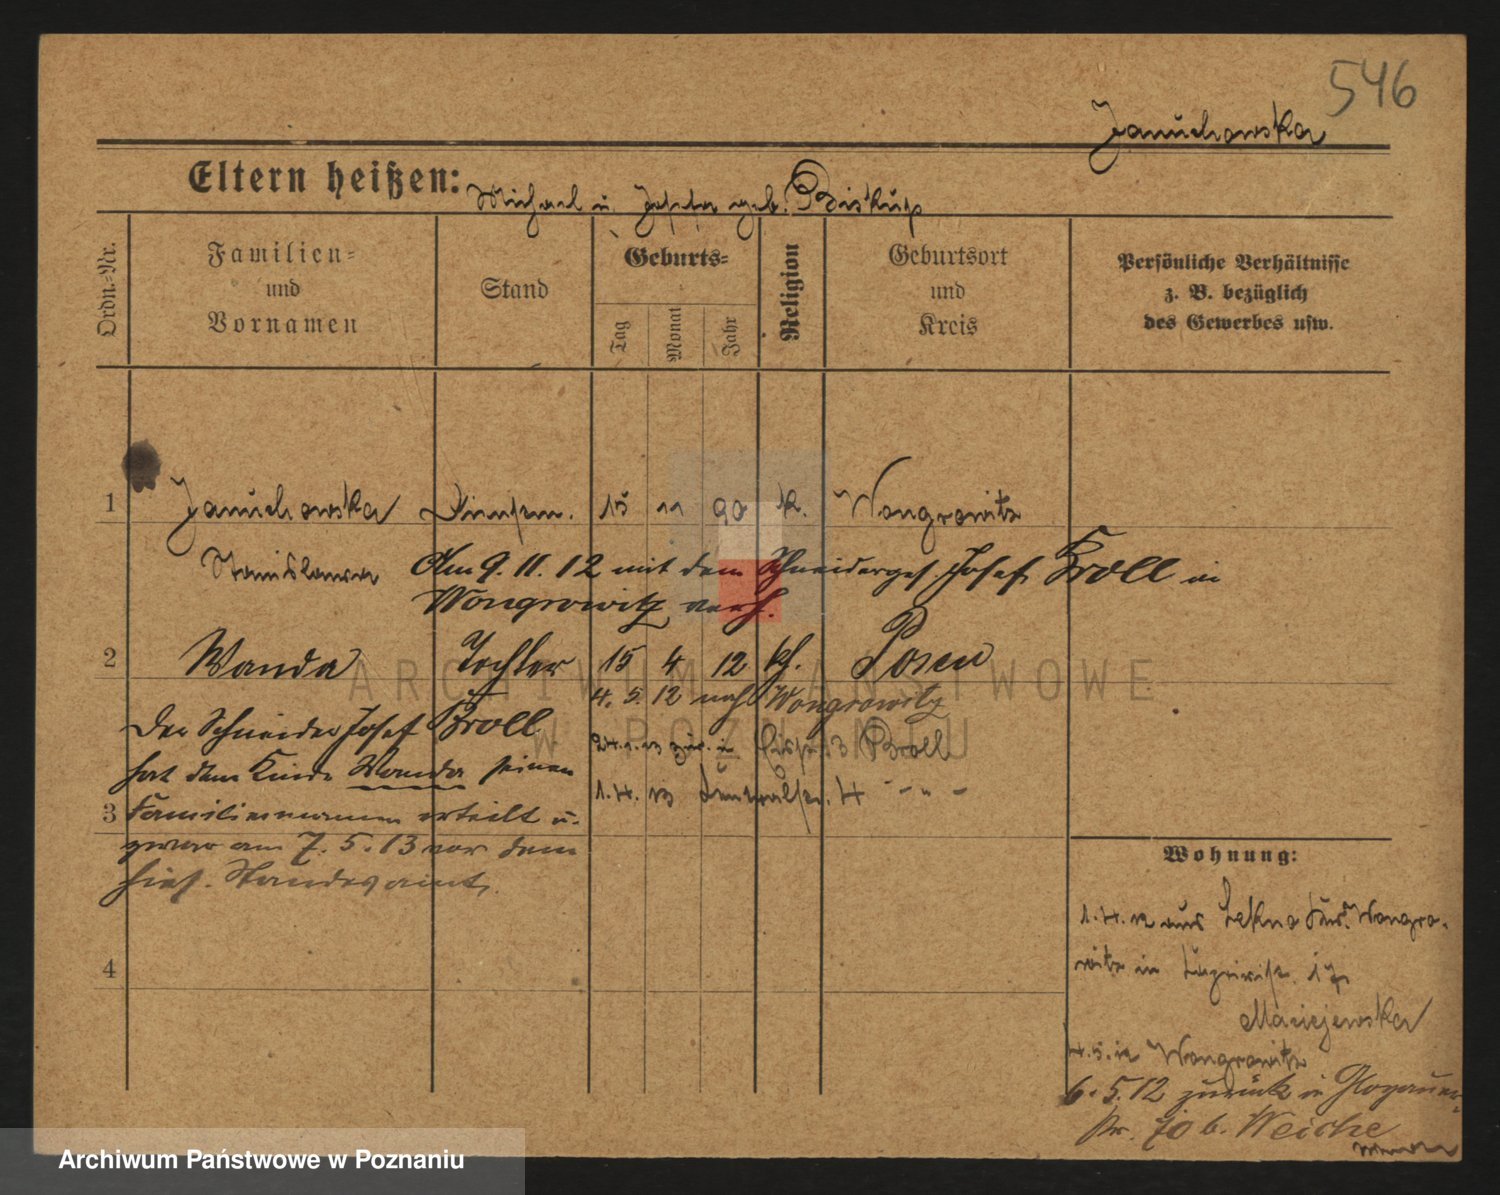 546
Januchowska
Eltern heißen: Michael u. Josefa geb. Biskup
Ordn.-Nr.
Familien-
und
Vornamen
Stand
Geburts-
Tag
Monat
Jahr
Religion
Geburtsort
und
Kreis
Persönliche Verhältnisse
z. B. bezüglich
des Gewerbes usw.
1 Januchowska 15 11 90 k. Wongrowitz
Stanislawa Am 9. 11. 12 mit dem Schneiderges. Josef Kroll in
Wongrowitz verh.
2 Wanda Tochter 15 4 12 kh. Posen
4. 5. 12 nach Wongrowitz
Der Schneider Josef Kroll
hat dem Kinde Wanda seinen
3 Familiennamen erteilt u.
zwar am 7. 5. 13 vor dem
hies. Standesamt.
24. 1. 13 zur. in 13 Kroll
1. 4. 13 4 - " -
4
Wohnung:
1. 4. 12 aus Lekno Krs. Wongro-
witz in 17
Maciejewska
4. 5. in Wongrowitz
6. 5. 12 zurück in Glogauer-
str. b. Weiche
ARCHIWUM PAŃSTWOWE
W POZNANIU
Archiwum Państwowe w Poznaniu